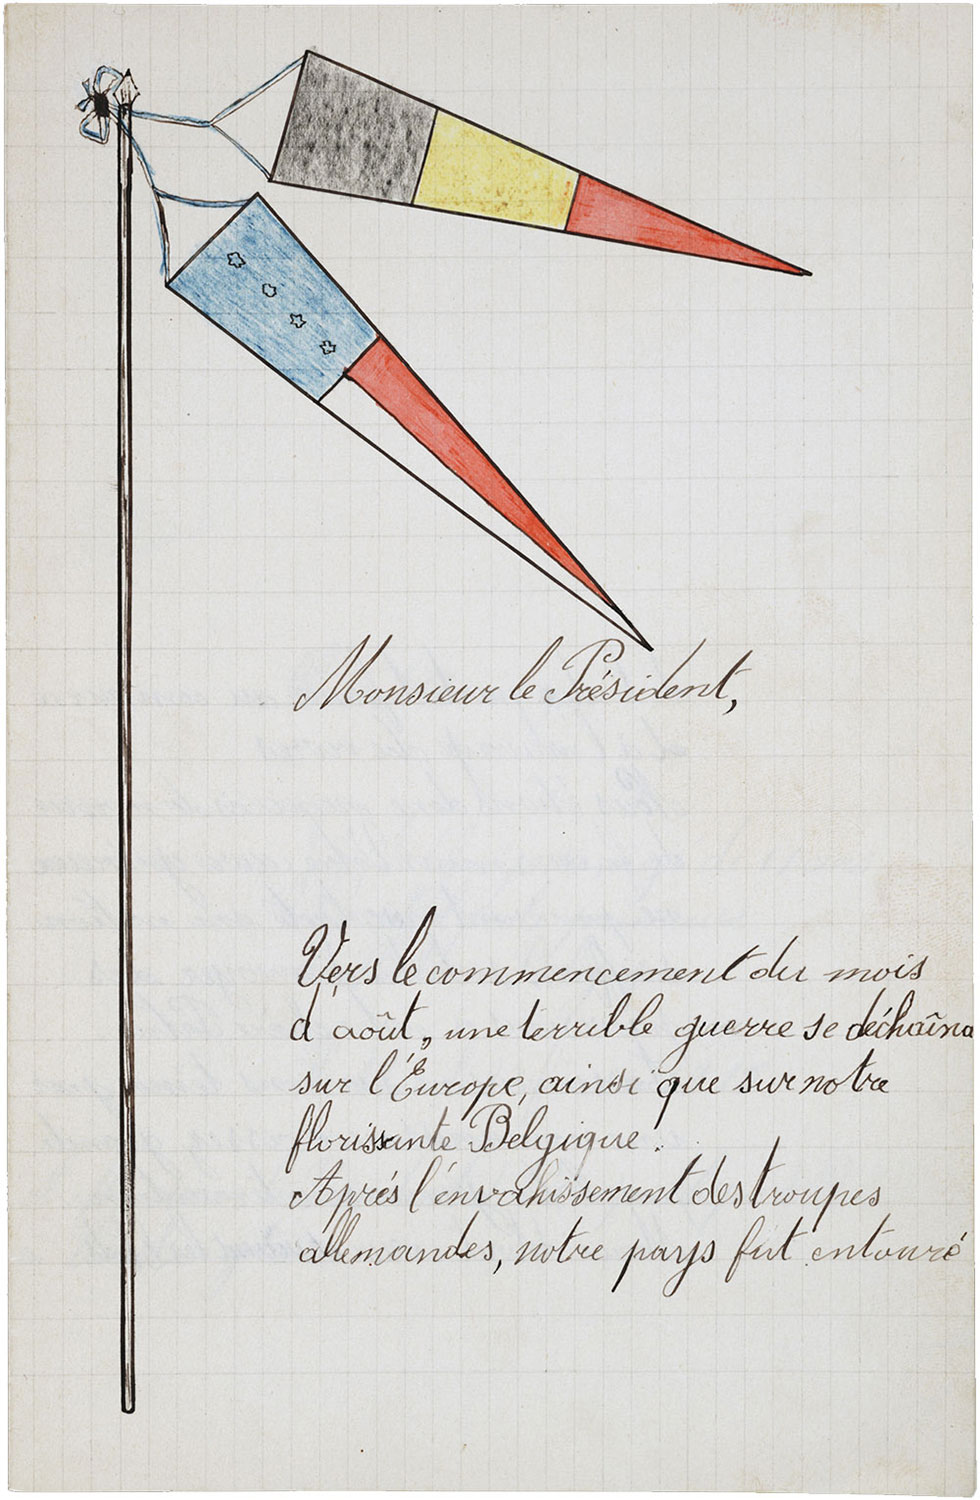 Monsieur le Président,
Vers le commencement du mois
d'août, une terrible guerre se déchaîna
sur l'Europe, ainsi que sur notre
florissante Belgique.
Après l'envahissement des troupes
allemandes, notre pays fut entouré